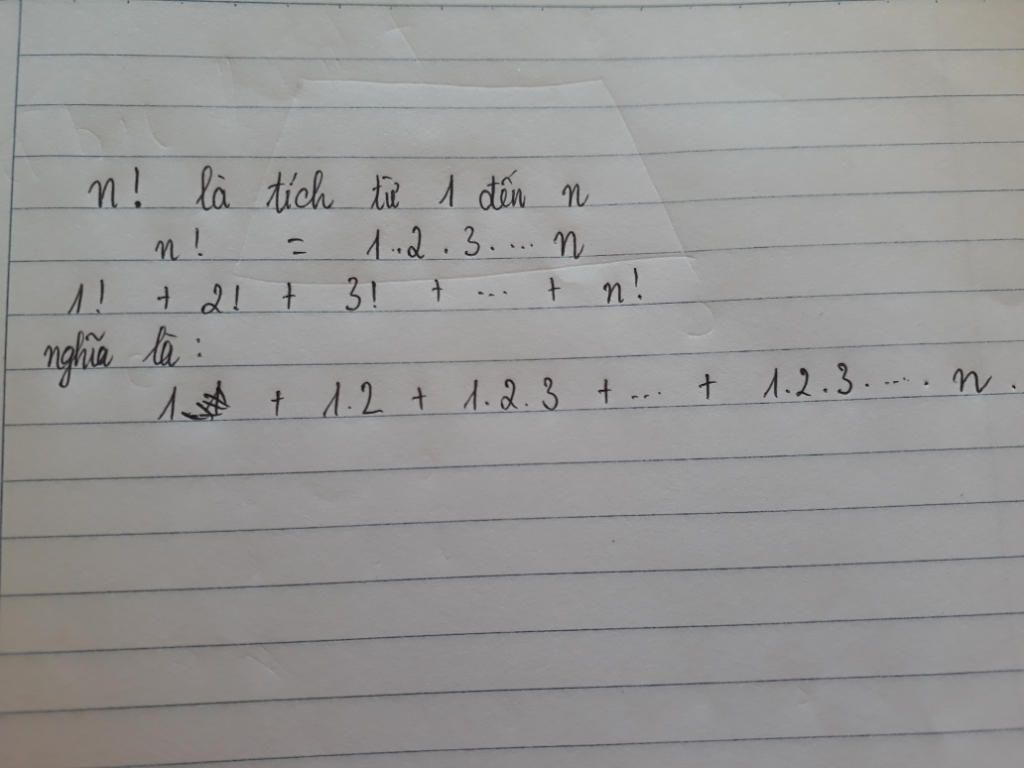 n! là tích từ 1 đến n
n! = 1..2.3.... n
1! + 2! + 3! + ... + n!
nghĩa là:
1 + 1.2 + 1.2.3 + ... + 1.2.3..... n.